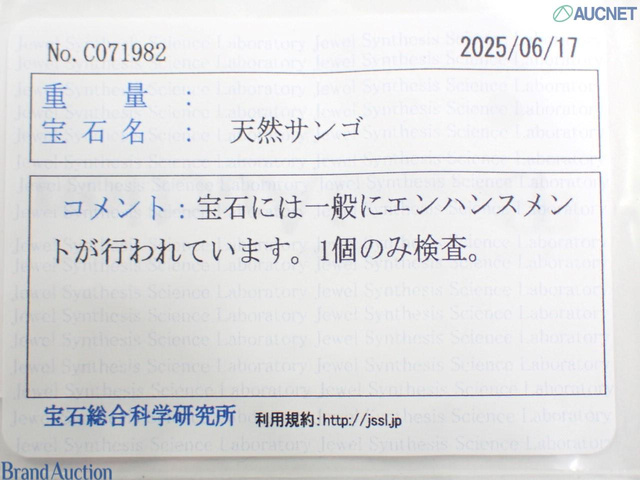 AUCNET
No. C071982
2025/06/17
重量:
宝石名: 天然サンゴ
コメント:宝石には一般にエンハンスメン
トが行われています。1個のみ検査。
宝石総合科学研究所 利用規約:http://jssl.jp
Jewel Synthesis Science Laboratory
BrandAuction